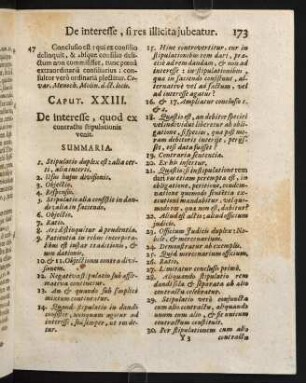 De interesse, si res illicita jubeatur. 173
47 Conclusio est: qui ex consilio
delinquit, & absque consilio delictum
non commisisset, nunc pœna
extraordinaria
consultor verò ordinaria plectitur. Covar.
Menoch. Maim. d. ct. locis.
CAPUT. XXIII.
De interesse, quod ex
contractu stipulationis
venit.
SUMMARIA.
1. Stipulatio duplex est: alia certi,
alia incerti.
2. Usus hujus divisionis.
3. Objectio.
4. Responsio.
5. Stipulatio alia consistit in dando:
alia in faciendo.
6. Objectio.
7. Ratio.
8. Ars distinguitur à prudentia.
9. Patientia in rebus interpretibus
est instar traditionis, &
non dationis.
10. & 11. Objectiones contra divisionem.
12. Negativa stipulatio sub affirmativa
continetur.
13. An & quando sub simplici
mixtum contineatur.
14. Quando stipulatio in dando
consistit, utrumque agitur ad
interesse, sive semper, ut
15. Hinc controvertitur, cur in
stipulationibus rem dari, precisè
ad rem dandam, & non ad
interesse: in stipulationibus
quæ in faciendo consistunt, alternativè
vel ad factum, vel
ad interesse agatur?
16. & 17. Ampliatur conclusio 1.
& 2.
18. Quæstio est, an debitor speciei
vel individui liberetur ab obligatione,
si species, quæ post moram
debitoris interiit, perisset,
res data fuisset?
19. Contraria sententia.
20. Ex his infertur.
21. Quæstio: si in stipulatione rem
dari rei etiam perempta est, in
obligatione, petitione, condemnatione
quomodo sententia executioni
mandabitur, vel quomodo
res, qua non est, debebitur?
22. Aliud est actus: aliud officium
judicis.
23. Officium Judicis duplex: Nobile,
& mercenarium.
24. Demonstratur ab exemplo.
25. Quid mercenarium officium.
26. Ratio.
27. Limitatur conclusio primâ.
28. Aliquando stipulatio rem
dandi sola & separata ab alio
contractu celebratur.
29. Stipulatio verò conjuncta
cum alio contractu, aliquando
unum cum alio, & sic unicum
contractum constituit.
30. Per stipulationem cum alio
Y 3 contractu